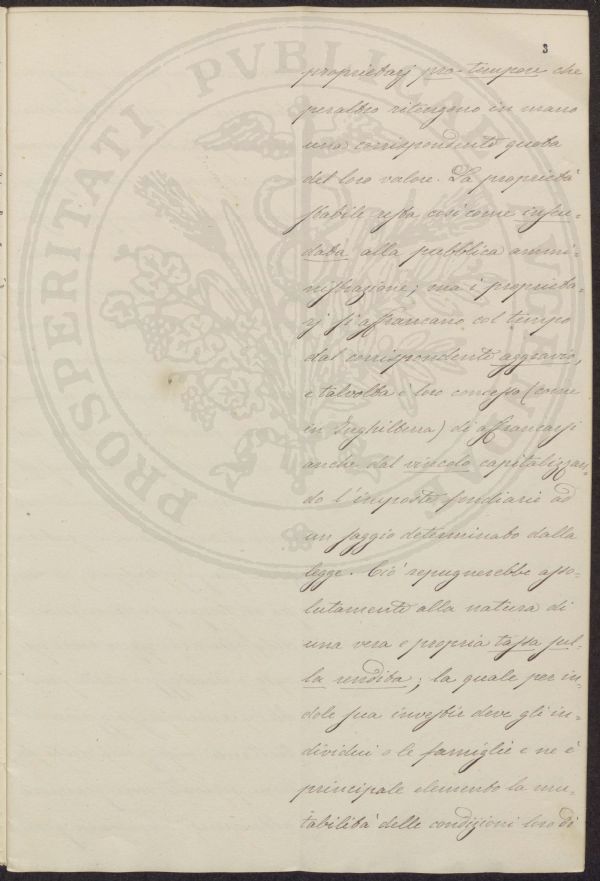 3
proprietarj pro-tempore che
peraltro ritengono in mano
una corrispondente quota
del loro valore. La proprietà
stabile resta così come infeu-
data alla pubblica ammi-
nistrazione; ma i proprieta-
rj si affrancano col tempo
dal corrispondente aggravio,
e talvolta è loro concesso (come
in Inghilterra) di affrancarsi
anche dal vincolo capitalizzan-
do l'imposta fondiaria ad
un saggio determinato dalla
legge. Ciò repugnerebbe asso-
lutamente alla natura di
una vera e propria tassa sul-
la rendita; la quale per in-
dole sua investir deve gli in-
dividui o le famiglie e ne è
principale elemento la mu-
tabilità delle condizioni loro di
PROSPERITATI PVBLICAE AVGENDAE